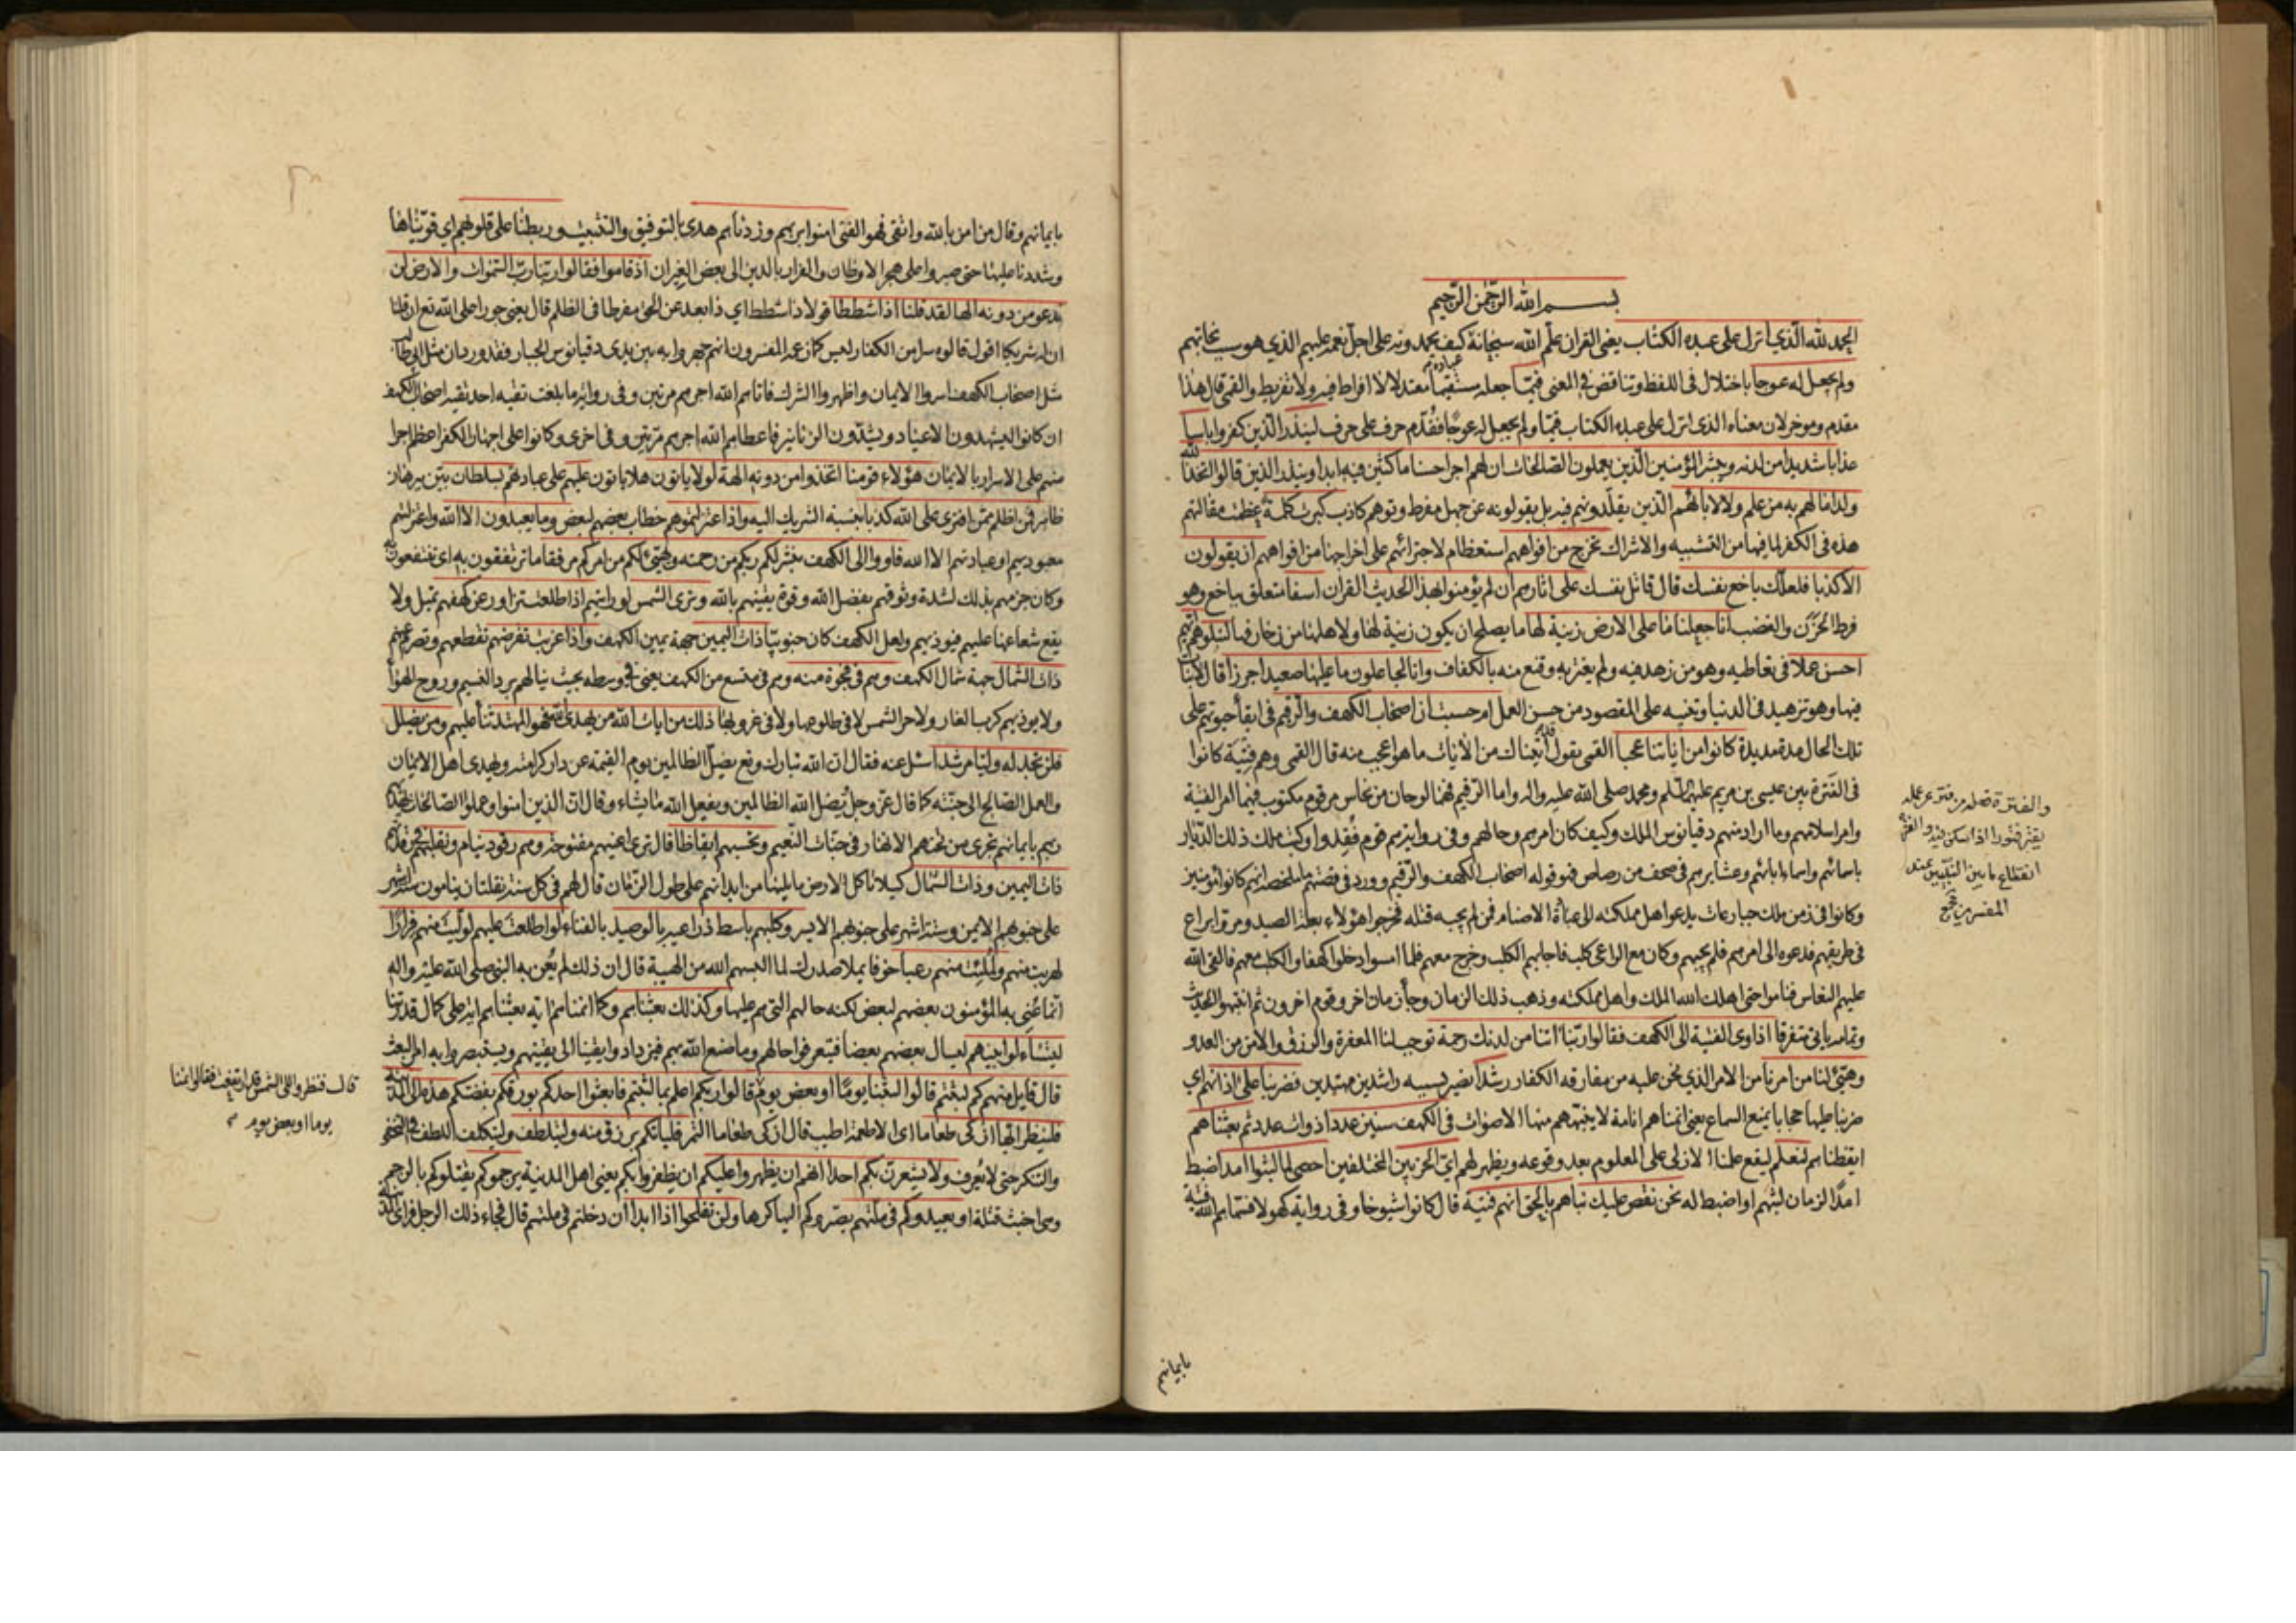 بسم الله الرحمن الرحيم
الحمد لله الذي انزل على عبده الكتاب يعني القران علم الله سبحانه كيف يحمدونه على اجل نعمه عليهم الذي هو سبب نجاتهم
ولم يجعل له عوجا باختلال في اللفظ وتناقض في المعنى قيما جعله مستقيما معتدلا لا افراط فيه ولا تفريط والقمي قال هذا
عباده
مقدم وموخر لان معناه الذي انزل على عبده الكتاب قيما ولم يجعل له عوجا فقدم حرف على حرف لينذر الذين كفروا باسا
عذابا شديدا من لدنه ويبشر المؤمنين الذين يعملون الصالحات ان لهم اجرا حسنا ماكثين فيه ابدا وينذر الذين قالوا اتخذ الله
ولدا ما لهم به من علم ولا لابائهم الذين يقلدونهم فيه بل يقولونه عن جهل مفرط وتوهم كاذب كبرت كلمة عظمت مقالتهم
هذه في الكفر لما فيها من التشبيه والاشراك تخرج من افواههم استعظام لاجترائهم على اخراجها من افواههم ان يقولون
الا كذبا فلعلك باخع نفسك قال قاتل نفسك على اثارهم ان لم يؤمنوا بهذا الحديث القران اسفا متعلق بباخع وهو
فرط الحزن والغضب انا جعلنا ما على الارض زينة لها ما يصلح ان يكون زينة لها ولاهلها من زخارفها لنبلوهم ايهم
احسن عملا في تعاطيه وهو من زهد فيه ولم يغتر به وقنع منه بالكفاف وانا لجاعلون ما عليها صعيدا جرزا قال لا نبات
فيها وهو تزهيد في الدنيا وتنبيه على المقصود من حسن العمل ام حسبت ان اصحاب الكهف والرقيم في ابقاء حيوتهم على
تلك الحال مدة مديدة كانوا من اياتنا عجبا القمي يقول قد اتيناك من الايات ما هو اعجب منه قال القمي وهم فتية كانوا
في الفترة بين عيسى بن مريم عليهما السلم ومحمد صلى الله عليه واله واما الرقيم فهما لوحان من نحاس مرقوم مكتوب فيهما امر الفتية
وامر اسلامهم وما اراد منهم دقيانوس الملك وكيف كان امرهم وحالهم وفي رواية هم قوم فقدوا وكتب ملك ذلك الديار
باسمائهم واسماء ابائهم وعشايرهم في صحف من رصاص فهو قوله اصحاب الكهف والرقيم وورد في قصتهم ما ملخصه انهم كانوا مؤمنين
وكانوا في زمن ملك جبار عات يدعو اهل مملكته الى عبادة الاصنام فمن لم يجبه قتله فخرجوا هؤلاء بعلة الصيد ومروا براع
في طريقهم فدعوه الى امرهم فلم يجبهم وكان مع الراعي كلب فاجابهم الكلب وخرج معهم فلما امسوا دخلوا كهفا والكلب معهم فالقى الله
عليهم النعاس فناموا حتى اهلك الله الملك واهل مملكته وذهب ذلك الزمان وجاء زمان اخر وقوم اخرون ثم انتبهوا الحديث
وتمامه ياتي متفرقا اذ اوى الفتية الى الكهف فقالوا ربنا اتنا من لدنك رحمة توجب لنا المغفرة والرزق والامن من العدو
وهيئ لنا من امرنا من الامر الذي نحن عليه من مفارقة الكفار رشدا نصير بسببه راشدين مهتدين فضربنا على اذانهم اي
ضربنا عليها حجابا يمنع السماع يعني انمناهم انامة لا ينبههم منها الاصوات في الكهف سنين عددا ذوات عدد ثم بعثناهم
ايقظناهم لنعلم ليقع علمنا الازلي على المعلوم بعد وقوعه ويظهر لهم اي الحزبين المختلفين احصى لما لبثوا امدا ضبط
امدا لزمان لبثهم او اضبط له نحن نقص عليك نباهم بالحق انهم فتية قال كانوا شيوخا وفي رواية كهولا فسماهم الله فتية
والفترة
انقطاع ما بين النبيين عند
المفسرين
بايمانهم
بايمانهم وقال من امن بالله واتقى فهو الفتى امنوا بربهم وزدناهم هدى بالتوفيق والتثبيت وربطنا على قلوبهم اي قويناها
وشددنا عليها حتى صبروا على هجر الاوطان والفرار بالدين الى بعض الغيران اذ قاموا فقالوا ربنا رب السموات والارض لن
ندعو من دونه الها لقد قلنا اذا شططا قولا ذا شطط اي ذا بعد عن الحق مفرط في الظلم قال يعني جورا على الله تع ان قلنا
ان له شريكا اقول قالوه سرا من الكفار ليس كما زعمه المفسرون انهم جهروا به بين يدي دقيانوس الجبار فقد ورد ان مثل ابي طالب
مثل اصحاب الكهف اسروا الايمان واظهروا الشرك فاتاهم الله اجرهم مرتين وفي رواية ما بلغت تقية احد تقية اصحاب الكهف
ان كانوا ليشهدون الاعياد ويشدون الزنانير فاعطاهم الله اجرهم مرتين وفي اخرى وكانوا على اجهار الكفر اعظم اجرا
منهم على الاسرار بالايمان هؤلاء قومنا اتخذوا من دونه الهة لولا ياتون هلا ياتون عليهم على عبادتهم بسلطان بين ببرهان
ظاهر فمن اظلم ممن افترى على الله كذبا بنسبة الشريك اليه واذ اعتزلتموهم خطاب بعضهم لبعض وما يعبدون الا الله واعتزلتم
معبوديهم او عبادتهم الا الله فاووا الى الكهف ينشر لكم ربكم من رحمته ويهيئ لكم من امركم مرفقا ما ترتفقون به اي تنتفعون به
وكان جزمهم بذلك لشدة وثوقهم بفضل الله وقوة يقينهم بالله وترى الشمس لو رايتهم اذا طلعت تزاور عن كهفهم تميل ولا
يقع شعاعها عليهم فيوذيهم ولعل الكهف كان جنوبيا ذات اليمين جهة يمين الكهف واذا غربت تقرضهم تقطعهم وتصرم عنهم
ذات الشمال جهة شمال الكهف وهم في فجوة منه وهم في متسع من الكهف يعني في وسطه بحيث ينالهم برد النسيم وروح الهواء
ولا يوذيهم كرب الغار ولا حر الشمس لا في طلوعها ولا في غروبها ذلك من ايات الله من يهد الله فهو المهتد ثناء عليهم ومن يضلل
فلن تجد له وليا مرشدا سئل عنه فقال ان الله تبارك وتع يضل الظالمين يوم القيمة عن دار كرامته ويهدي اهل الايمان
والعمل الصالح الى جنته كما قال عز وجل يضل الله الظالمين ويفعل الله ما يشاء وقال ان الذين امنوا وعملوا الصالحات يهديهم
ربهم بايمانهم تجري من تحتهم الانهار في جنات النعيم وتحسبهم ايقاظا قال ترى اعينهم مفتوحة وهم رقود نيام ونقلبهم
ذات اليمين وذات الشمال كيلا تاكل الارض ما يليها من ابدانهم على طول الزمان قال لهم في كل سنة نقلتان ينامون ستة اشهر
على جنوبهم الايمن وستة اشهر على جنوبهم الايسر وكلبهم باسط ذراعيه بالوصيد بالفناء لو اطلعت عليهم لوليت منهم فرارا
لهربت منهم ولملئت منهم رعبا خوفا يملا صدرك لما البسهم الله من الهيبة قال ان ذلك لم يعن به النبي صلى الله عليه واله
انما عني به المؤمنون بعضهم لبعض لكنه حالهم التي هم عليها وكذلك بعثناهم وكما انمناهم اية بعثناهم اية على كمال قدرتنا
ليتساءلوا بينهم ليسال بعضهم بعضا فيتعرفوا حالهم وما صنع الله بهم فيزدادوا يقينا الى يقينهم ويستبصروا به امر البعث
قال قايل منهم كم لبثتم قالوا لبثنا يوما او بعض يوم قالوا ربكم اعلم بما لبثتم فابعثوا احدكم بورقكم بفضتكم هذه الى المدينة
فلينظر ايها ازكى طعاما اي الاطعمة اطيب قال ازكى طعاما التمر فلياتكم برزق منه وليتلطف وليتكلف اللطف في التخفي
والتنكر حتى لا يعرف ولا يشعرن بكم احدا انهم ان يظهروا عليكم ان يظفروا بكم يعني اهل المدينة يرجموكم يقتلوكم بالرجم
وهي اخبث قتلة او يعيدوكم في ملتهم يصيروكم اليها كرها ولن تفلحوا اذا ابدا ان دخلتم في ملتهم قال فجاء ذلك الرجل فراى المدينة
قال فنظروا الى الشمس قد ارتفعت فقالوا نمنا
يوما او بعض يوم